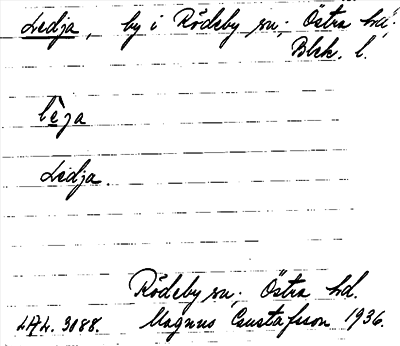 Ledja, by i Rödeby sn; Östra hd;
Blek. l.
lèja
Ledja.
Rödeby sn; Östra hd.
LAL. 3088. Magnus Gustafsson 1936.